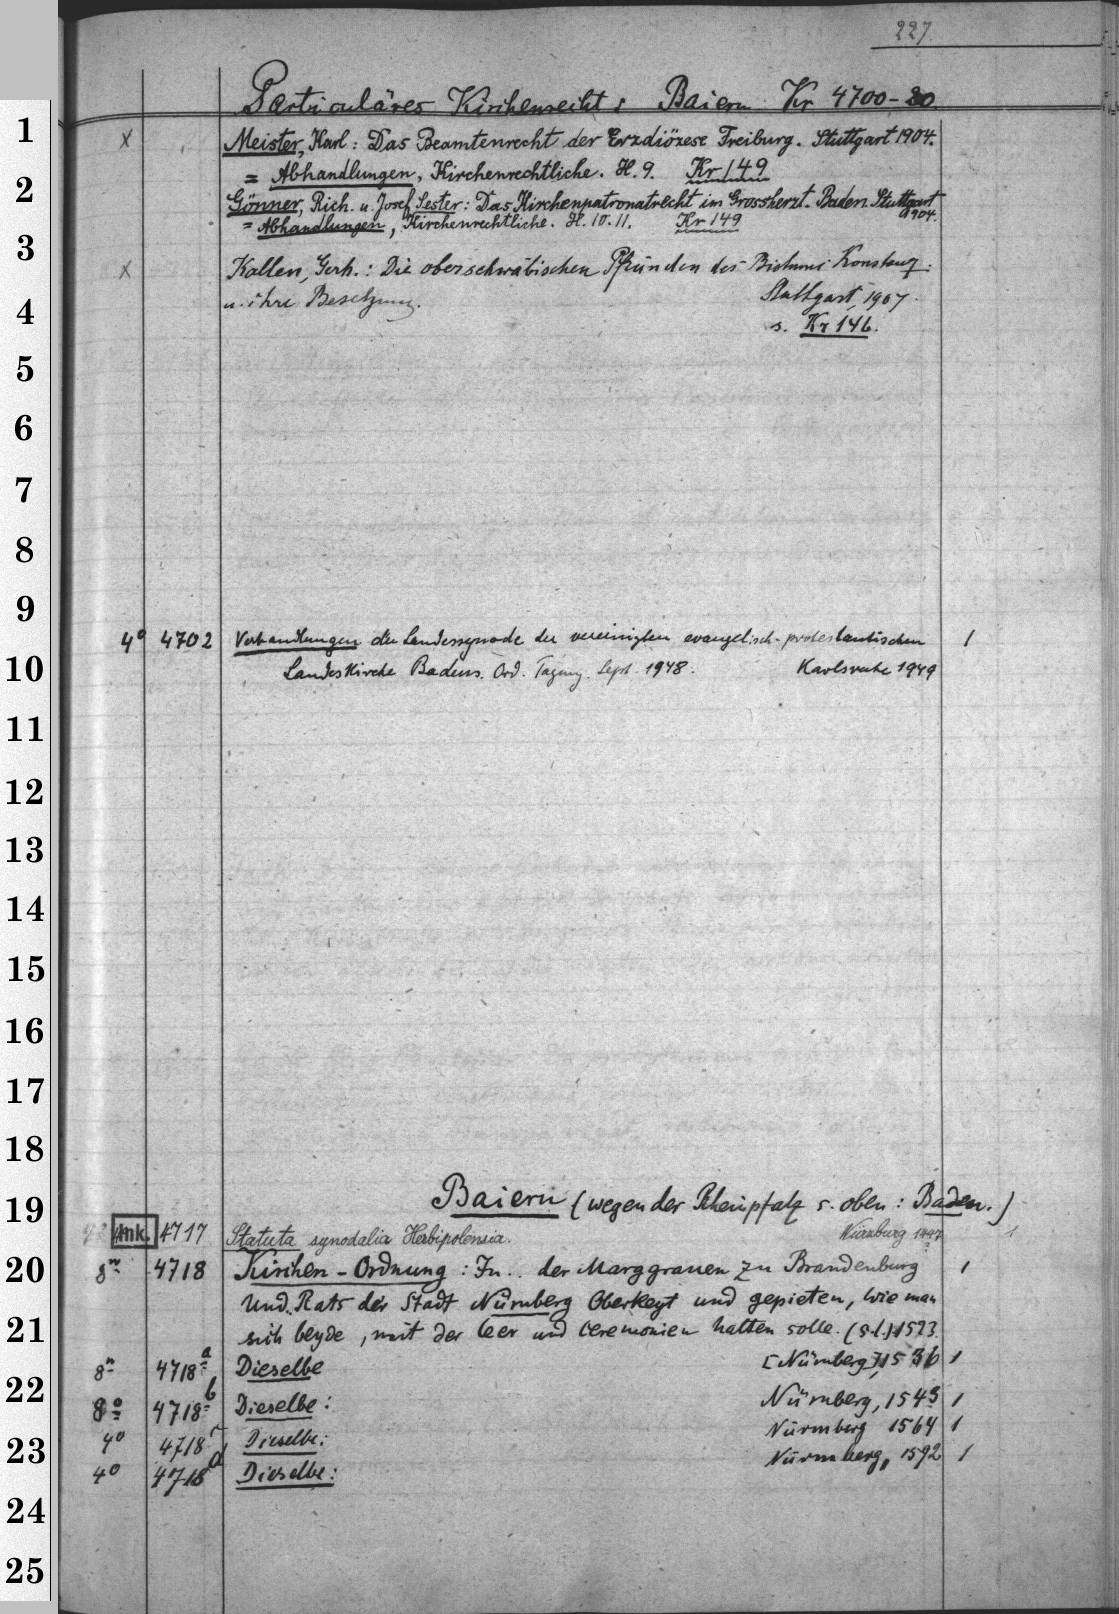 227.
Particuläres Kirchenrecht: Baiern Kr 4700-20
1 x Meister, Karl: Das Beamtenrecht der Erzdiözese Freiburg. Stuttgart 1904.
2 = Abhandlungen, Kirchenrechtliche. H. 9. Kr 149
Gönner, Rich. u. Josef Sester: Das Kirchenpatronatrecht im Grossherzt. Baden. Stuttgart 1904.
= Abhandlungen, Kirchenrechtliche. H. 10. 11. Kr 149
3 x Kallen, Gerh.: Die oberschwäbischen Pfründen des Bistums Konstanz
4 u. ihre Besetzung. Stuttgart, 1907.
s. Kr 146.
5
6
7
8
9
4° 4702 Verhandlungen der Landessynode der vereinigten evangelisch-protestantischen 1
10 Landeskirche Badens. Ord. Tagung. Sept. 1948. Karlsruhe 1949
11
12
13
14
15
16
17
18
19 Baiern (wegen der Rheinpfalz s. oben: Baden.)
Ink. 4717 Statuta synodalia Herbipolensia. 1
20 8° 4718 Kirchen-Ordnung: In.. der Marggrauen zu Brandenburg 1
Und. Rats der Stadt Nürnberg Oberkeyt und gepieten, wie man
21 sich beyde, mit der leer und ceremonien halten solle. (s.l.) 1533.
8° 4718a Dieselbe [Nürnberg,] 1536 1
22 8° 4718b Dieselbe: Nürnberg, 1543 1
4° 4718c Dieselbe: Nürnberg 1564 1
23 4° 4718d Dieselbe: Nürnberg, 1592 1
24
25